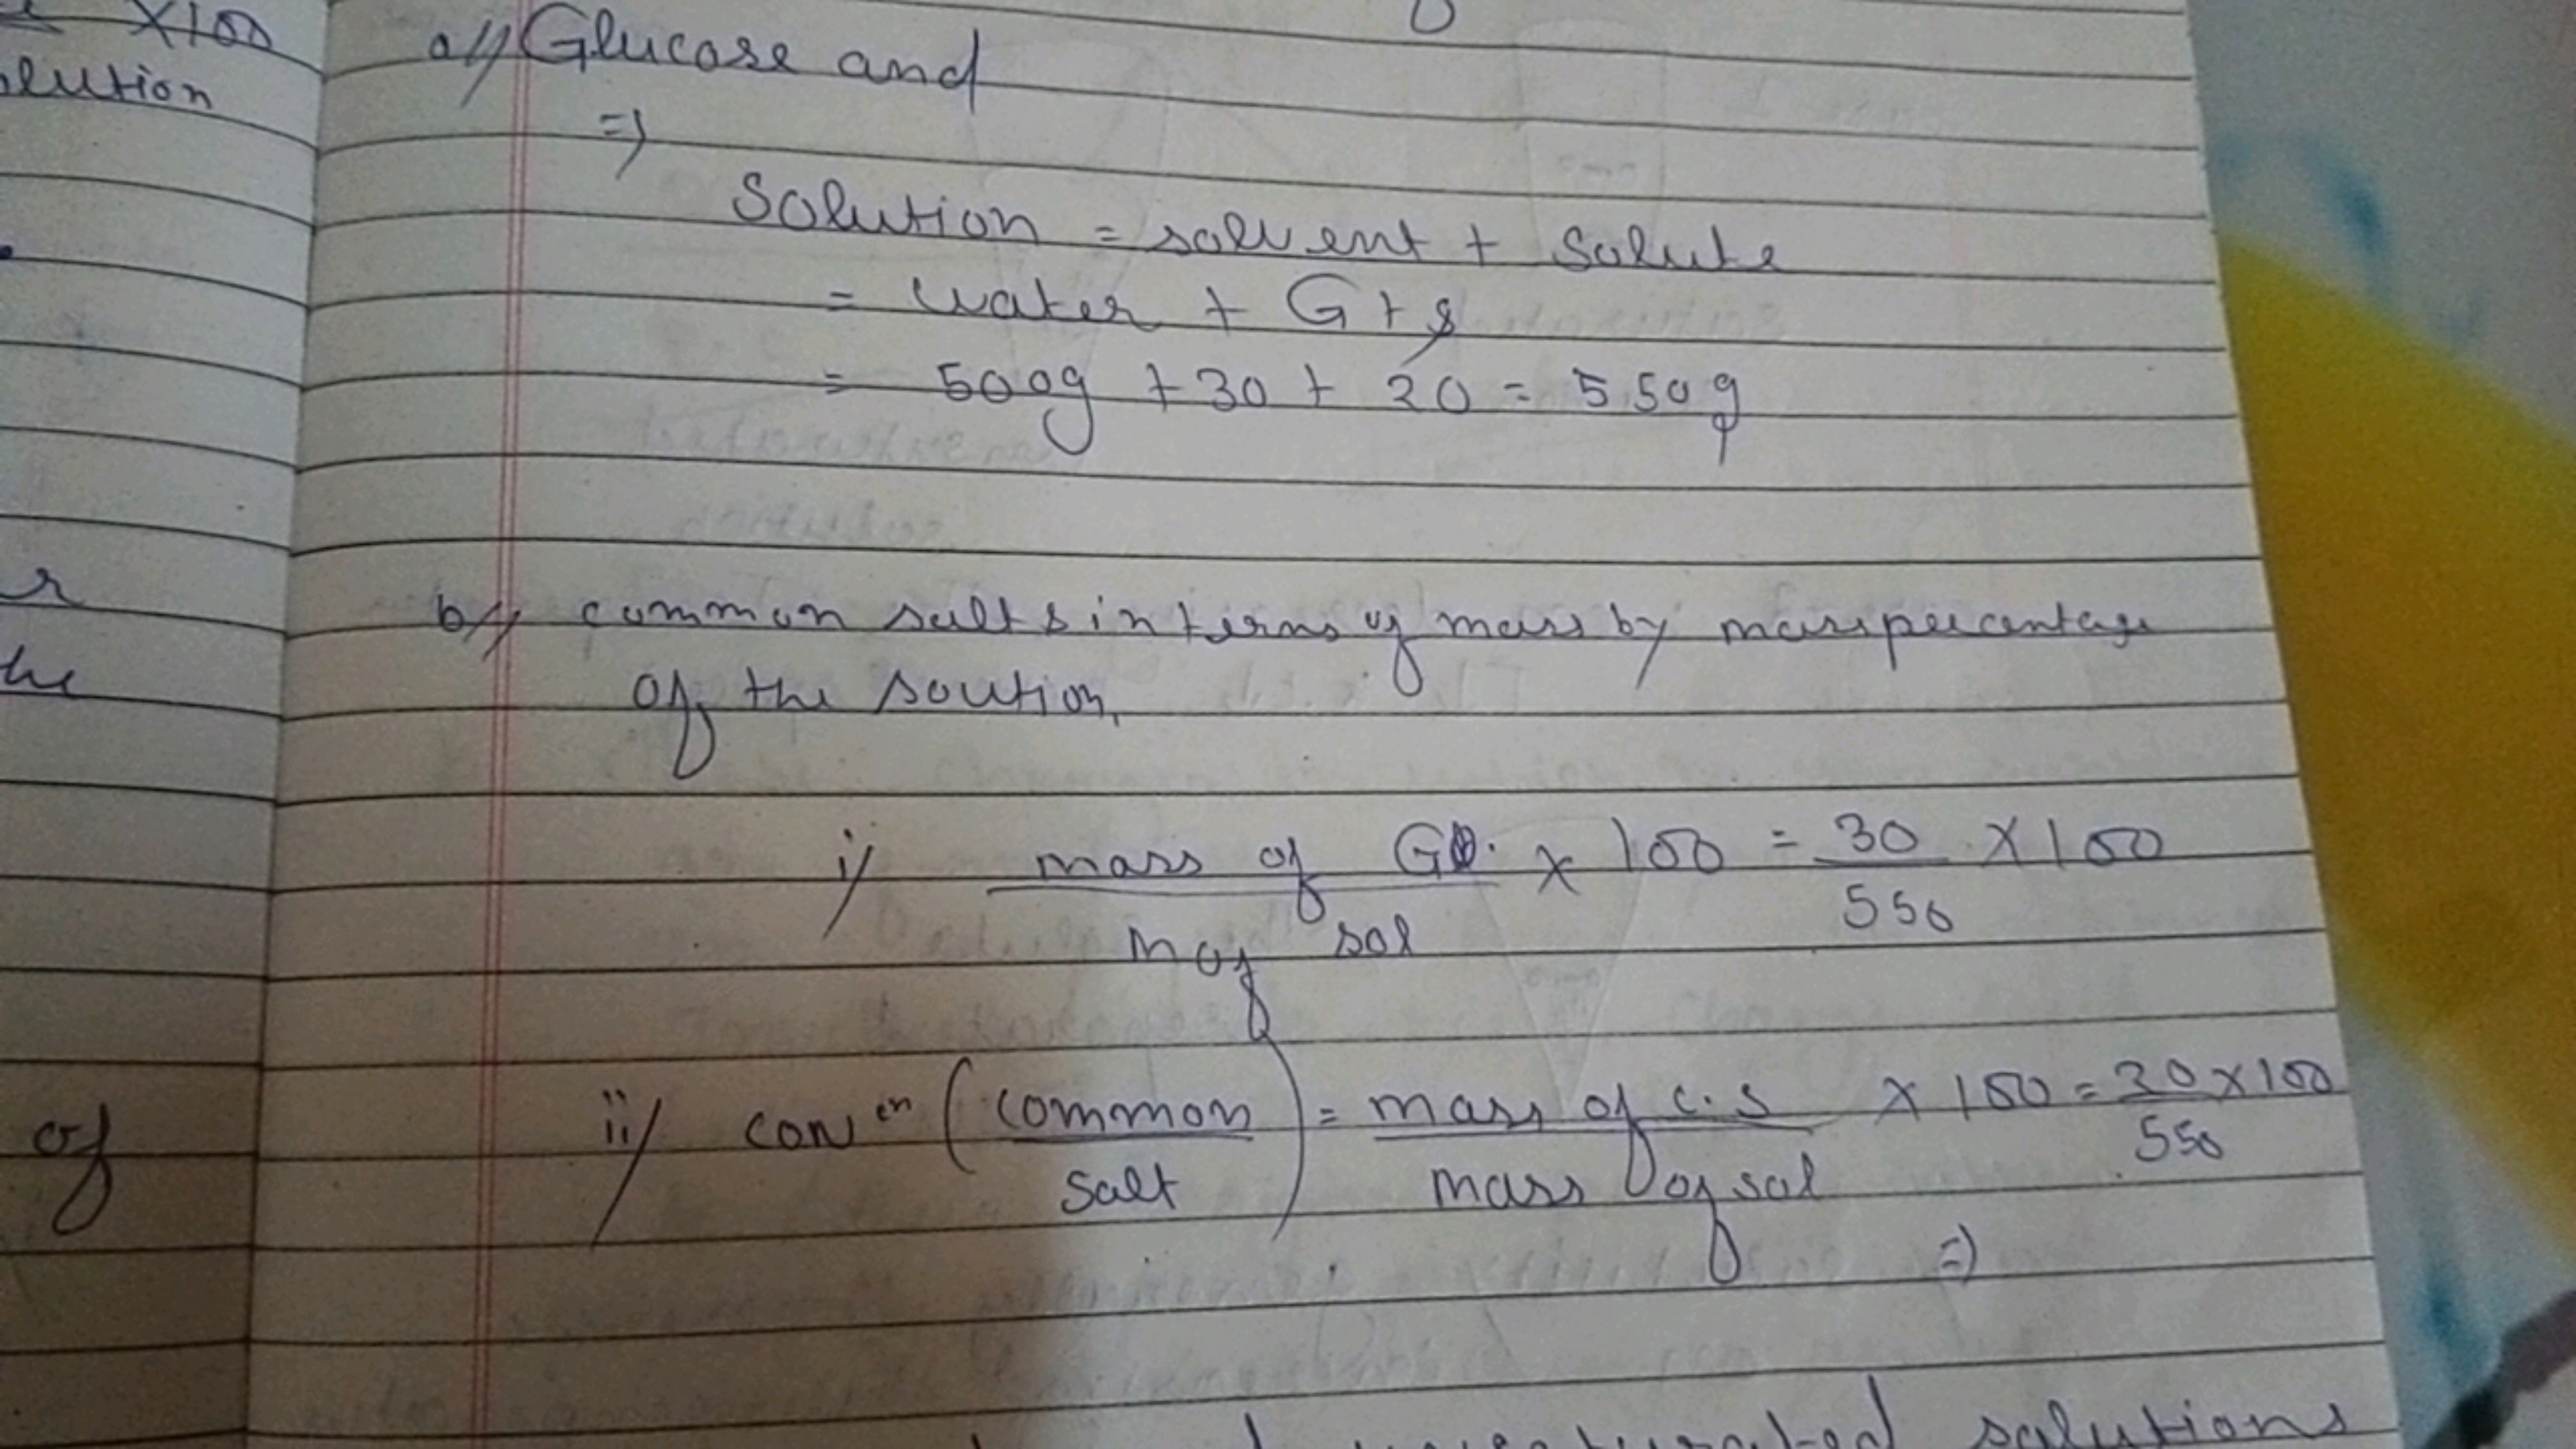 ×100
lution
a// Glucose and
=>
Solution = solvent + Solute
= water + G + s
= 500g + 30 + 20 = 550g
b// common salts in terms of mass by mass percentage
of the soution,
i/ mass of Gl. × 100 = 30 × 100
m of sol 550
ii/ conen (common salt) = mass of c.s × 100 = 20 × 100
mass of sol 550
=>
r
he
of
solutions